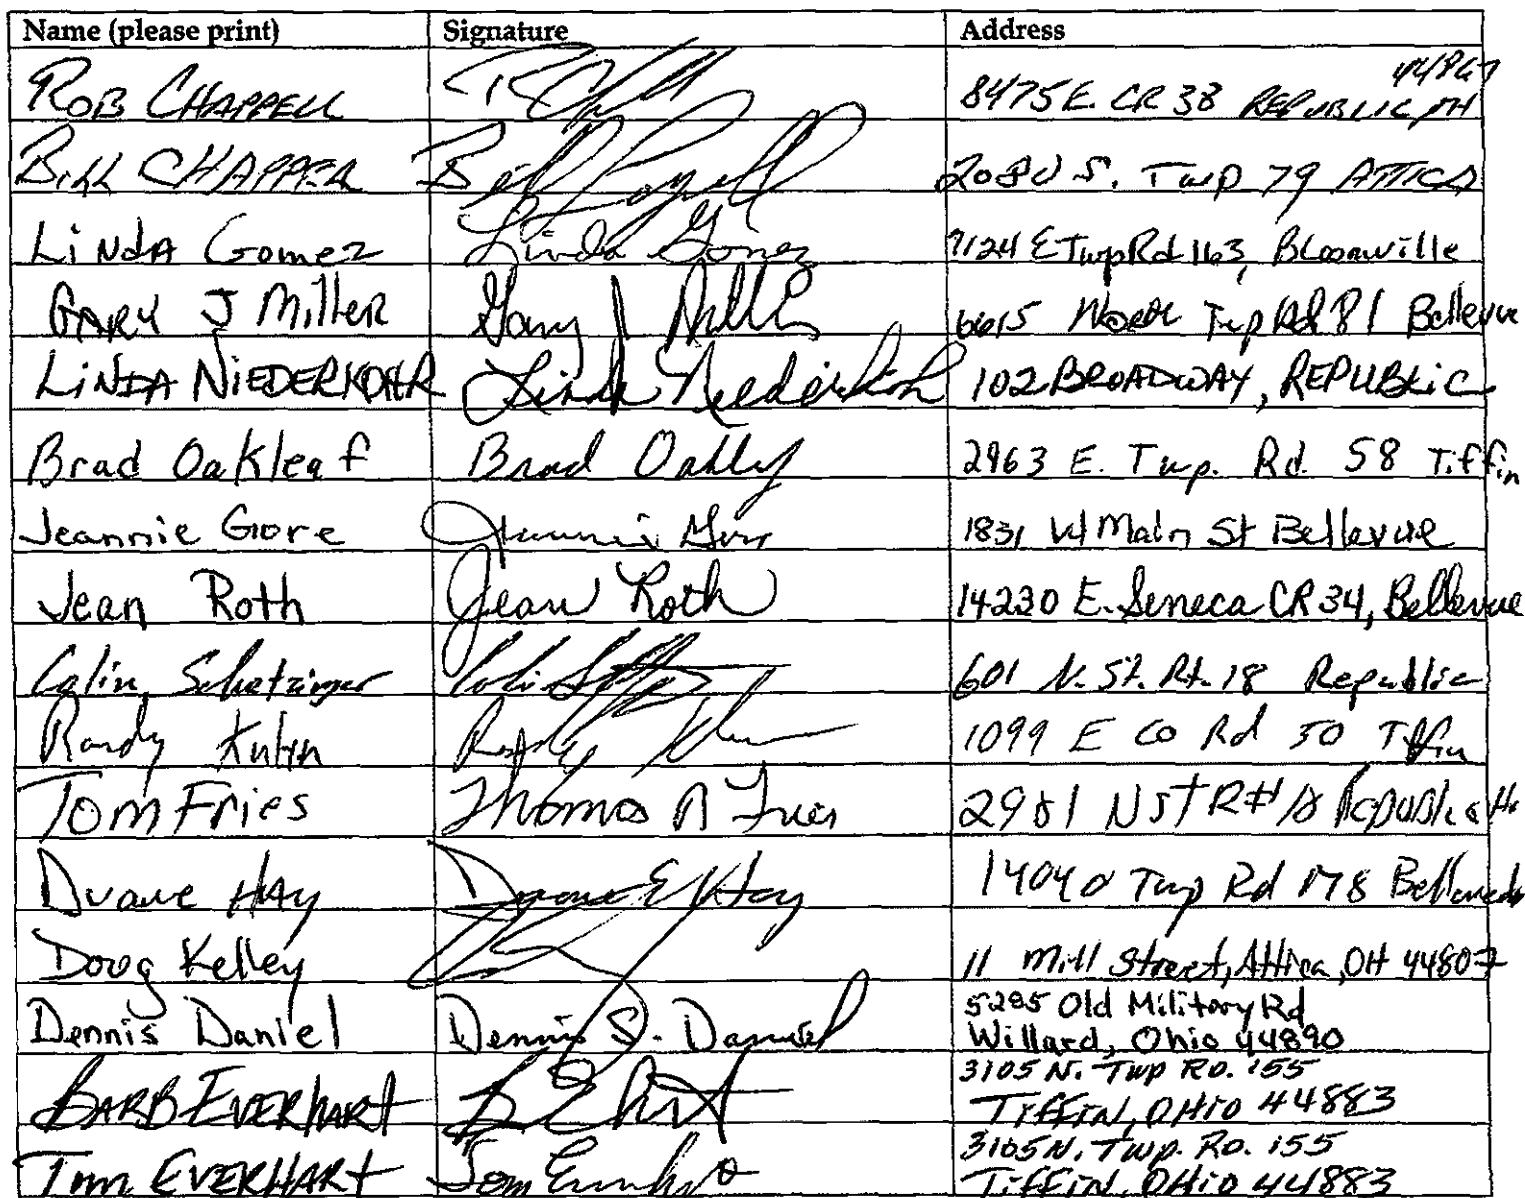 Name (please print) Signature Address
ROB CHAPPELL 8475 E. CR 38 REPUBLIC, OH 44867
BILL CHAPPELL Bill 2080 S. Twp 79 ATTICA
LiNdA Gomez Linda Gomez 7124 E Twp Rd 163, Bloomville
GARY J Miller Gary J Miller 6615 North Twp Rd 81 Bellevue
LiNDA NIEDERKOHR Linda Niederkohr 102 BROADWAY, REPUBLIC
Brad Oakleaf Brad Oaklf 2963 E. Twp. Rd. 58 Tiffin
Jeannie Gore Jeannie Gore 1831 W Main St Bellevue
Jean Roth Jean Roth 14230 E. Seneca CR 34, Bellevue
Colin Schetzinger 601 N. St. Rt. 18 Republic
Randy Kuhn Randy 1099 E Co Rd 50 Tiffin
Tom Fries Thomas Fries 2981 N St Rt 18 Republic
Duane HAy Duane E Hay 14040 Twp Rd 178 Bellevue
Doug Kelley 11 Mill Street, Attica, OH 44807
Dennis Daniel Dennis S. Daniel 5285 Old Military Rd
Willard, Ohio 44890
BARB EVERHART 3105 N. Twp RD. 155
TiFFiN, OHio 44883
Tom EVERHART Tom 3105 N. Twp. RD. 155
TiFFiN, OHio 44883